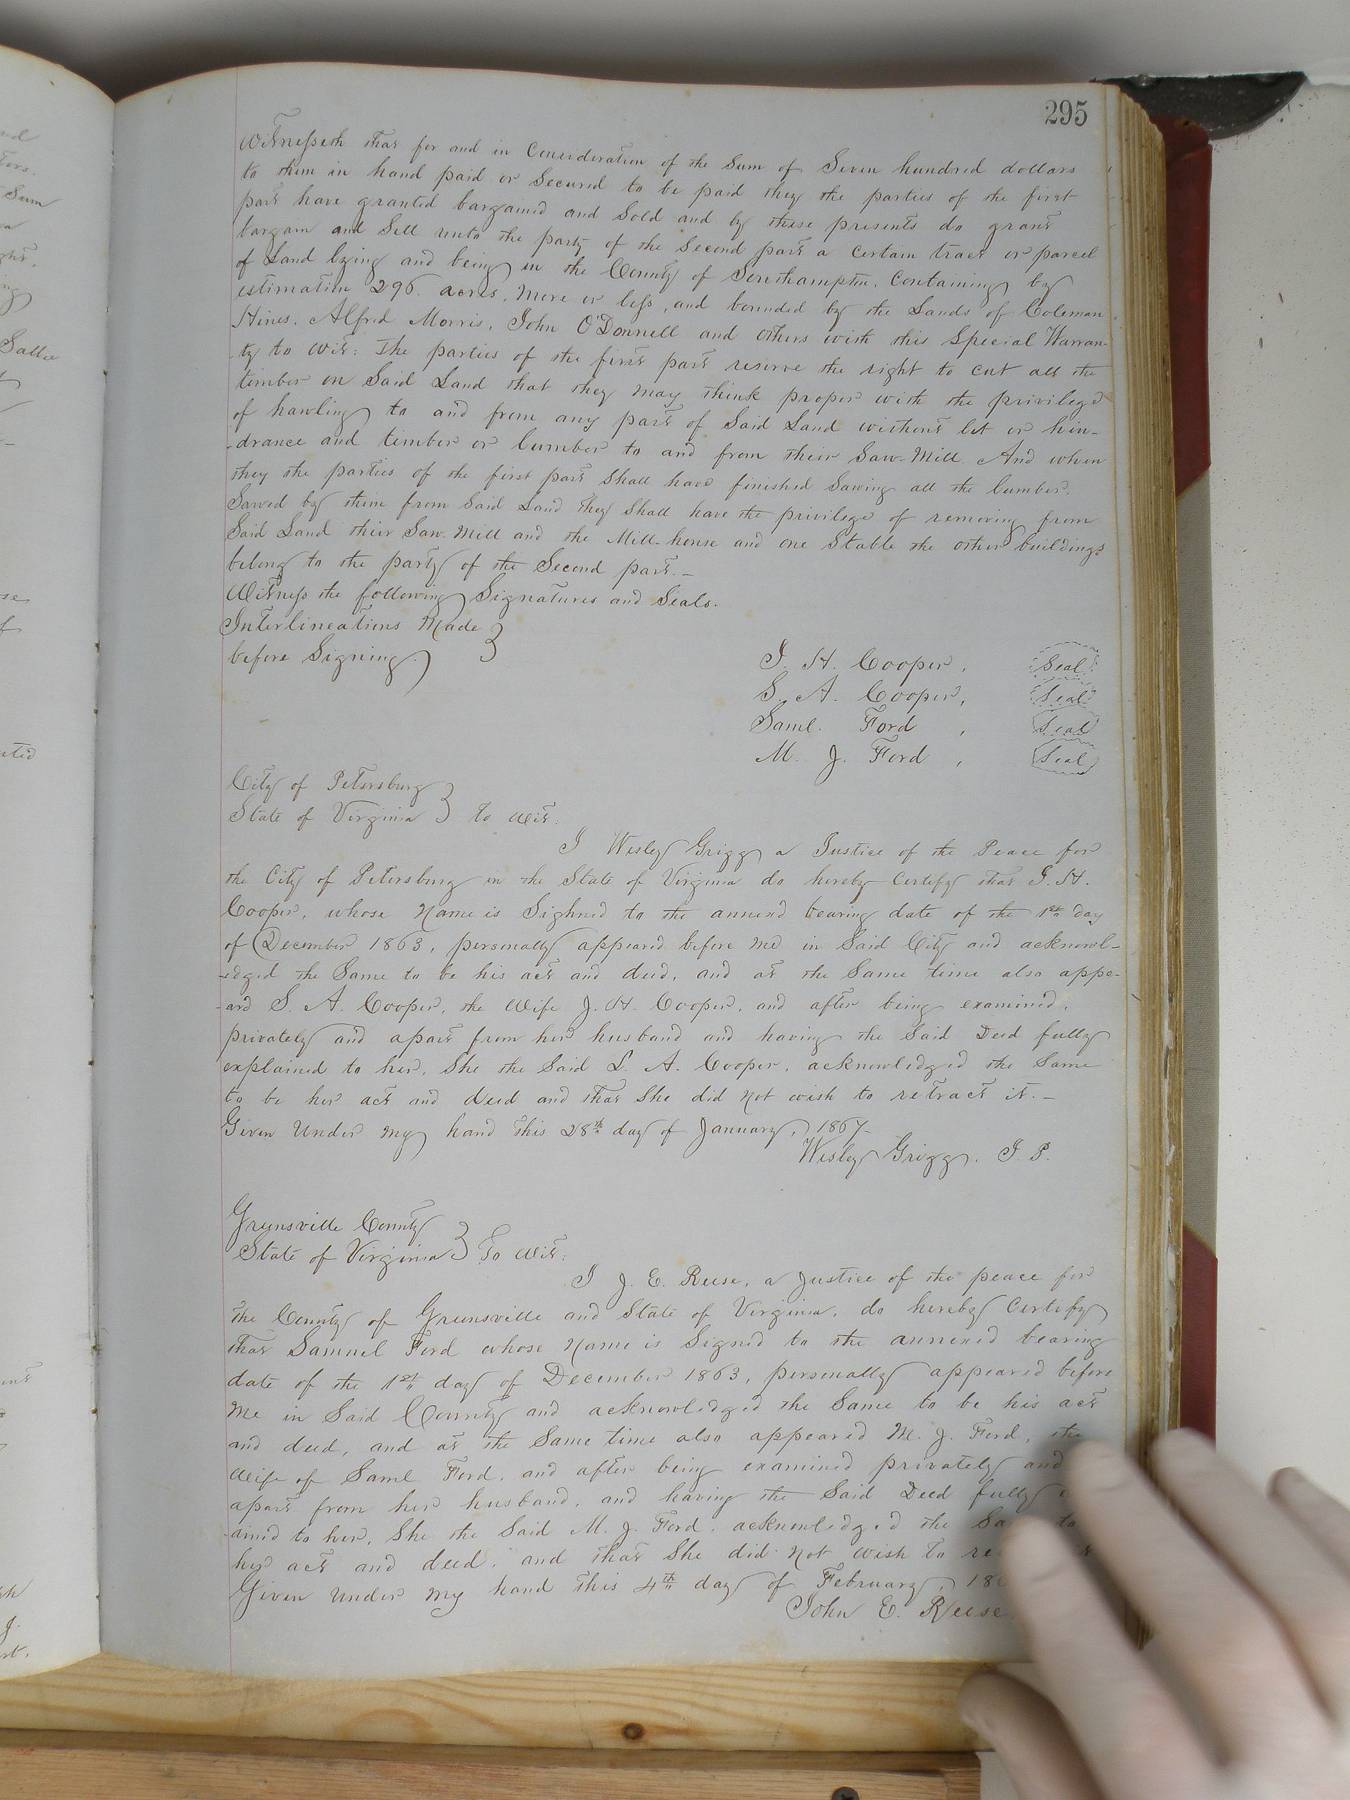 295
Witnesseth that for and in Consideration of the Sum of Seven hundred dollars
to them in hand paid or Secured to be paid they the parties of the first
part have granted bargained and Sold and by these presents do grant
bargain and Sell unto the party of the Second part a certain tract or parcel
of Land lying and being in the County of Southampton, Containing by
estimation 296. acres, More or less, and bounded by the Lands of Coleman
Hines, Alfred Morris, John O'Donnell and others with this Special Warran-
-ty to wit: The parties of the first part reserve the right to cut all the
timber on Said Land that they may think proper with the privilege
of hawling to and from any part of Said Land without let or hin-
-drance and timber or lumber to and from their Saw-Mill And when
they the parties of the first part Shall have finished Sawing all the lumber
Sawed by them from Said Land they Shall have the privilege of removing from
Said Land their Saw Mill and the Mill-house and one Stable the other buildings
belong to the party of the Second part.—
Witness the following Signatures and Seals.
Interlineations Made
before Signing
J. H. Cooper, Seal
S. A. Cooper, Seal
Saml. Ford , Seal
M. J. Ford , Seal
City of Petersburg
State of Virginia } to wit.
I Wesley Grigg a Justice of the Peace for
the City of Petersburg in the State of Virginia do hereby certify that J. H.
Cooper, whose Name is Sighned to the annexd bearing date of the 1st day
of December 1863, personally appeared before me in Said City and acknowl-
-edged the Same to be his act and deed, and at the Same time also appe-
-ard S. A. Cooper, the Wife J. H. Cooper, and after being examined,
privately and apart from her husband and having the Said Deed fully
explained to her, She the Said S. A. Cooper, acknowledged the Same
to be her act and deed and that She did not wish to retract it.—
Given Under My hand this 28th day of January, 1867-
Wesley Grigg. J. P.
Greensville County
State of Virginia } To wit:
I J. E. Reese, a Justice of the peace for
the County of Greensville and State of Virginia, do hereby certify
that Samuel Ford whose Name is Signed to the annexed bearing
date of the 1st day of December 1863, personally appeared before
Me in Said County and acknowledged the Same to be his act
and deed, and at the Same time also appeared M. J. Ford, the
Wife of Saml Ford, and after being examined privately and
apart from her husband, and having the Said Deed fully
-ained to her, She the Said M. J. Ford, acknowledged the
her act and deed, and that She did not wish to
Given under my hand this 4th day of February,
John E. Reese